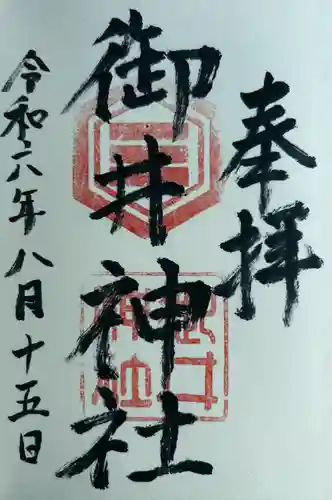 奉拝
御井神社
御井神社
令和六年八月十五日